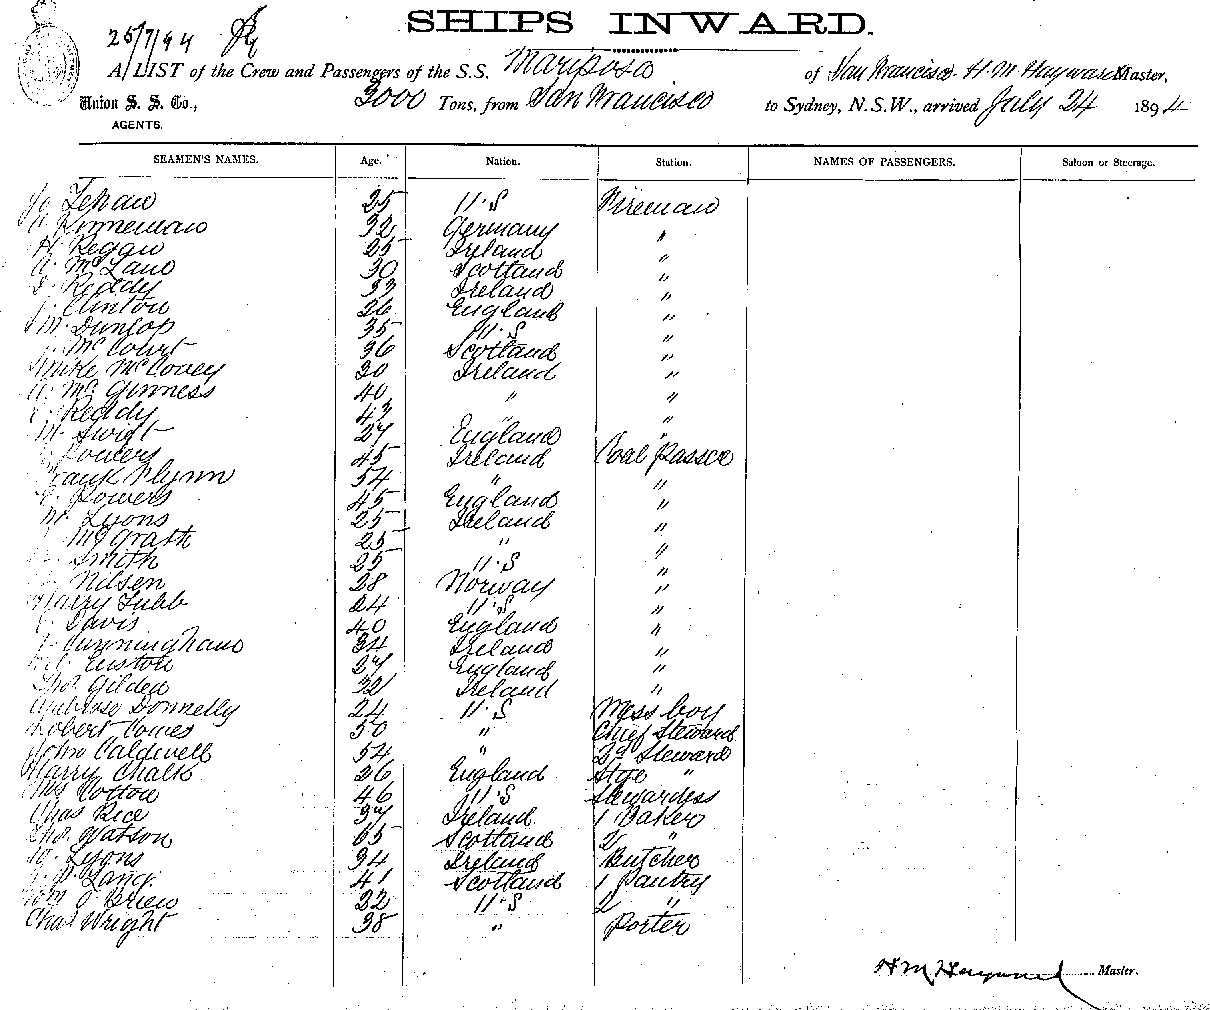 SHIPS INWARD.
25/7/94
A LIST of the Crew and Passengers of the S.S. Mariposa of San Francisco H. M. Hayward Master,
Union S. S. Co., 3000 Tons, from San Francisco to Sydney, N.S.W., arrived July 24 1894
AGENTS.
SEAMEN'S NAMES. Age. Nation. Station. NAMES OF PASSENGERS. Saloon or Steerage.
25 U.S Fireman
Kinneman 32 Germany "
H. Regan 25 Ireland "
McLane 30 Scotland "
Reddy 33 Ireland "
Clinton 26 England "
M. Dunlop 35 U.S "
McCourt 36 Scotland "
Mike McCovey 30 Ireland "
McGinness 40 " "
Reddy 43 " "
M. Swift 27 England "
Powers 45 Ireland Coal Passer
Frank Flynn 54 " "
Powers 45 England "
M. Lyons 25 Ireland "
McGrath 25 " "
Smith 25 U.S "
Nilsen 28 Norway "
Harry Tubb 24 U.S "
Davis 40 England "
Cunningham 34 Ireland "
27 England "
Thos. Gilden 32 Ireland "
Donnelly 24 U.S Mess boy
Robert 50 " Chief Steward
John Caldwell 54 " 2d Steward
Harry Chalk 26 England Stge "
Mrs Cotton 46 U.S Stewardess
Chas Rice 37 Ireland 1 Baker
Thos. Watson 65 Scotland 2 "
Lyons 34 Ireland Butcher
Lang. 41 Scotland 1 Pantry
Wm O'Brien 32 U.S 2 "
Chas Wright 38 " Porter
H M Hayward Master.